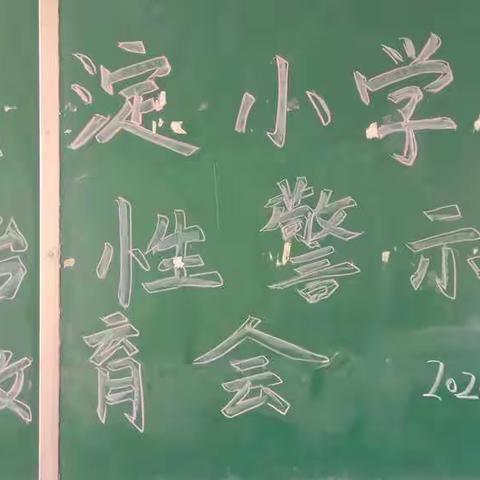 淀小学
治性警示
教育会 202